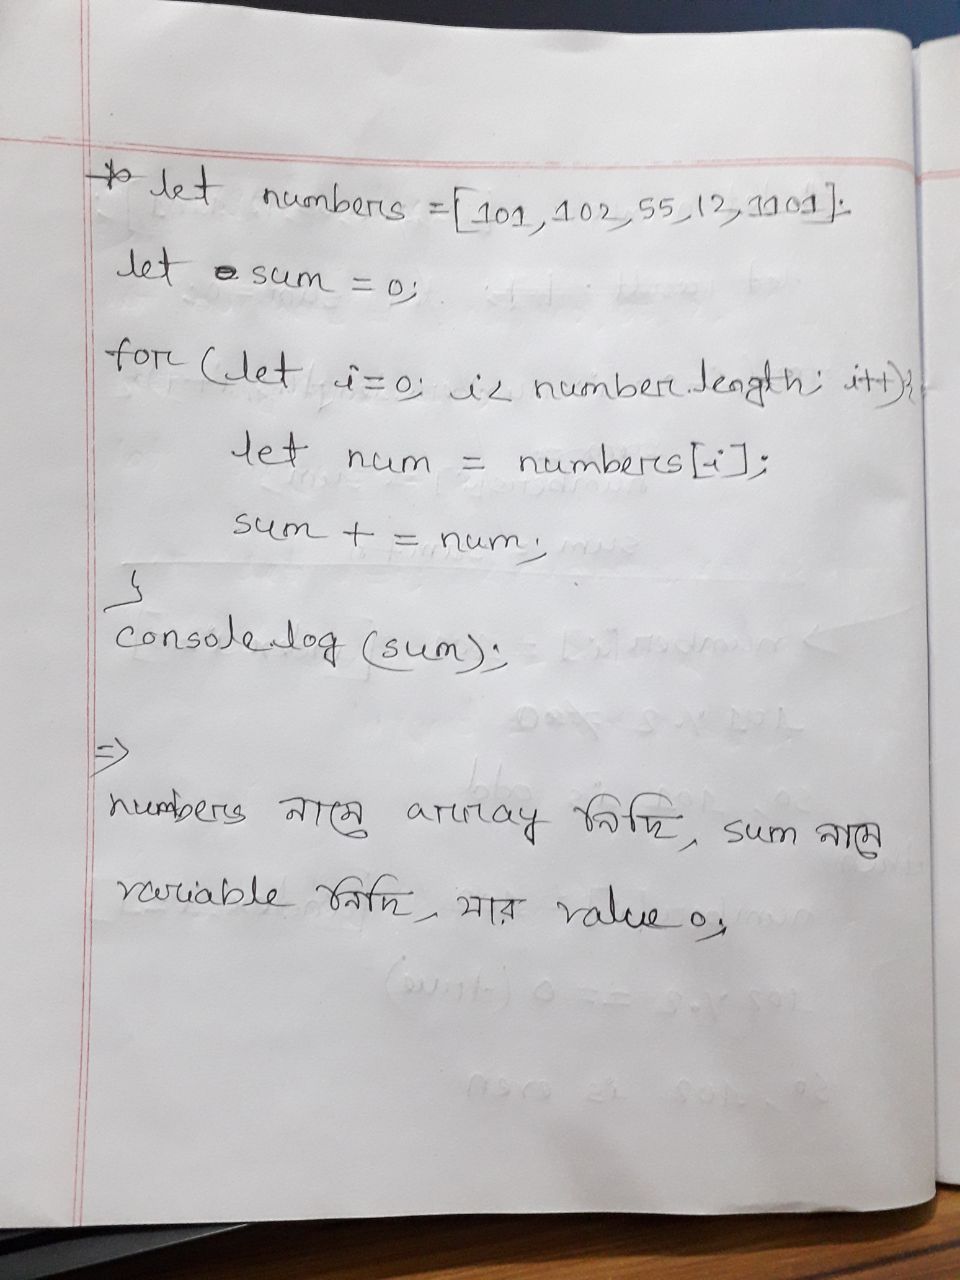 * let numbers = [101, 102, 55, 12, 1101];
let sum = 0;
for (let i=0; i< number.length; i++){
let num = numbers[i];
sum + = num;
}
console.log (sum);
=>
numbers নামে array নিছি, sum নামে
variable নিছি, যার value 0;